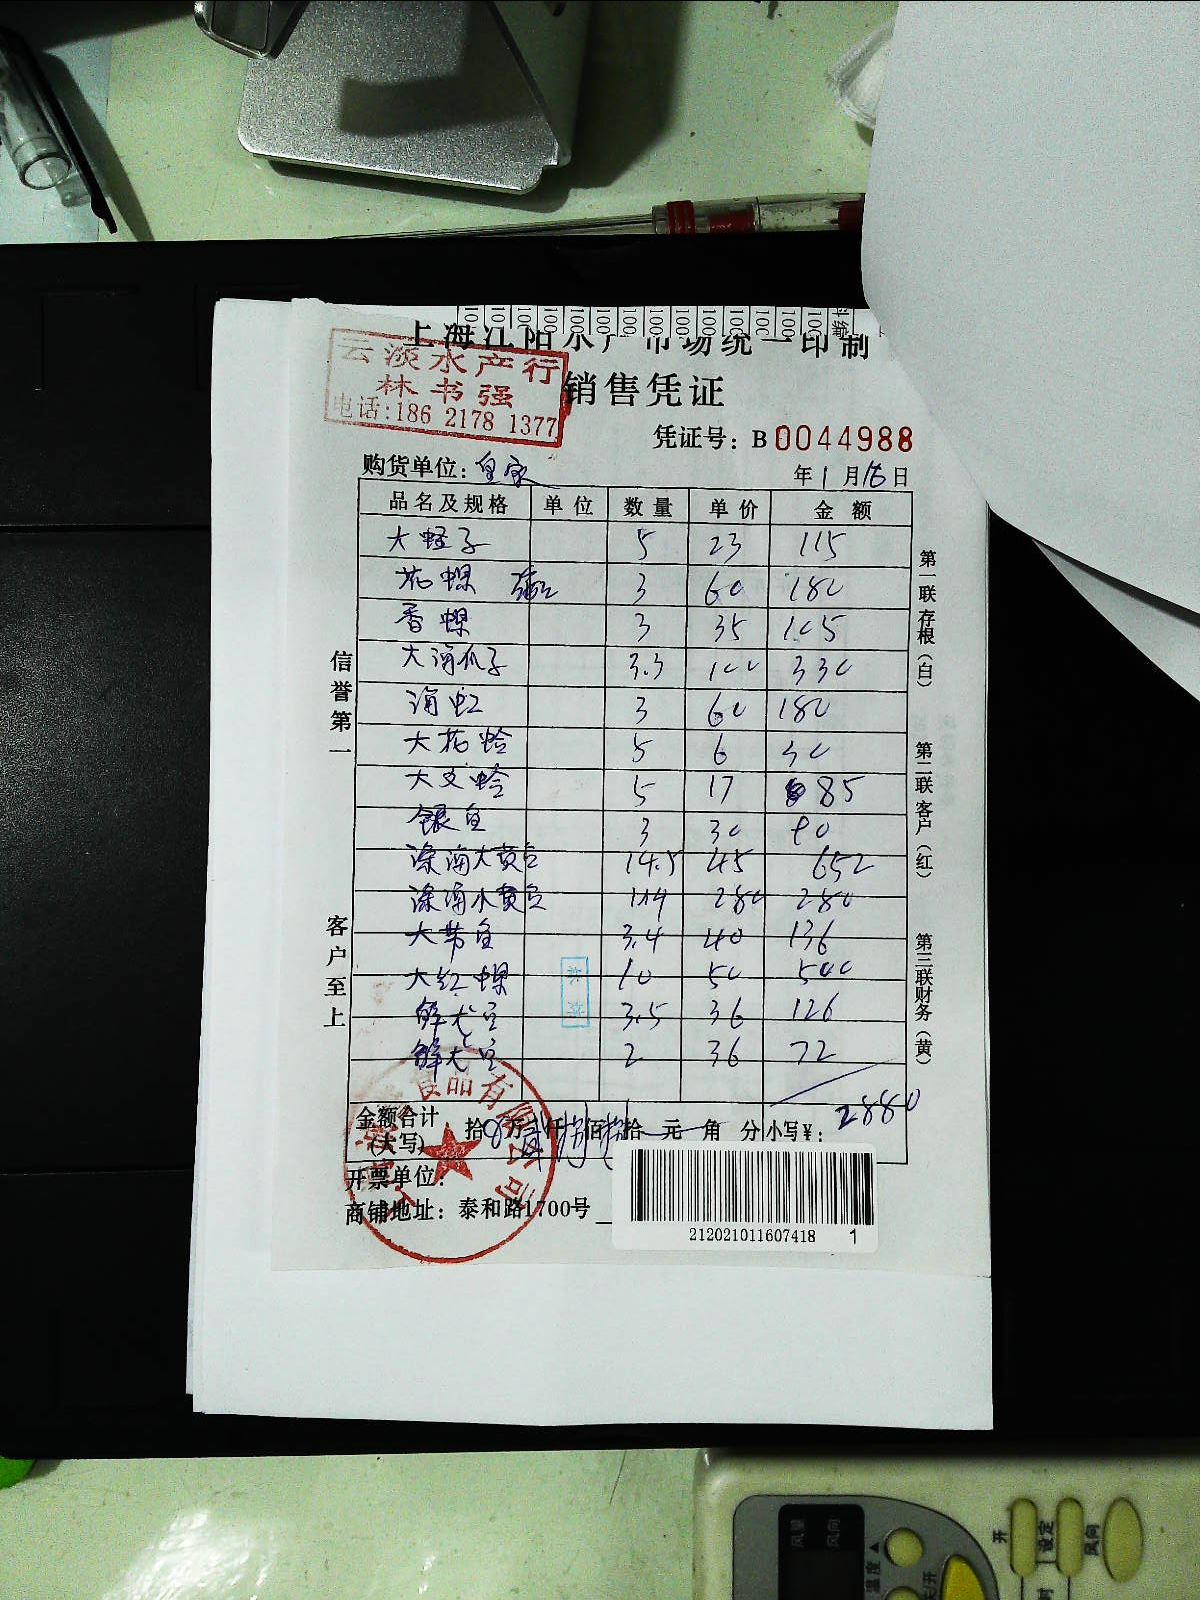 上海江阳水产市场统一印制
云淡水产行
林书强
电话:186 2178 1377
销售凭证
凭证号: B 0044988
购货单位: 皇家
年 1 月 16 日
品名及规格 单位 数量 单价 金额
大蛏子 5 23 115
花螺 3 60 180
香螺 3 35 105
大海瓜子 3.3 100 330
海虹 3 60 180
大花蛤 5 6 30
大文蛤 5 17 85
银鱼 3 30 90
深海大黄鱼 14.5 45 652
深海小黄鱼 280 280
大带鱼 3.4 40 136
大红螺 10 50 500
3.5 36 126
2 36 72
金额合计
(大写) 拾 万 仟 佰 拾 元 角 分 小写¥: 2880
食品有限公司
开票单位:
商铺地址: 泰和路1700号
212021011607418 1
信誉第一
客户至上
第一联存根(白)
第二联客户(红)
第三联财务(黄)
风量
风向
温度
开
设定
风向